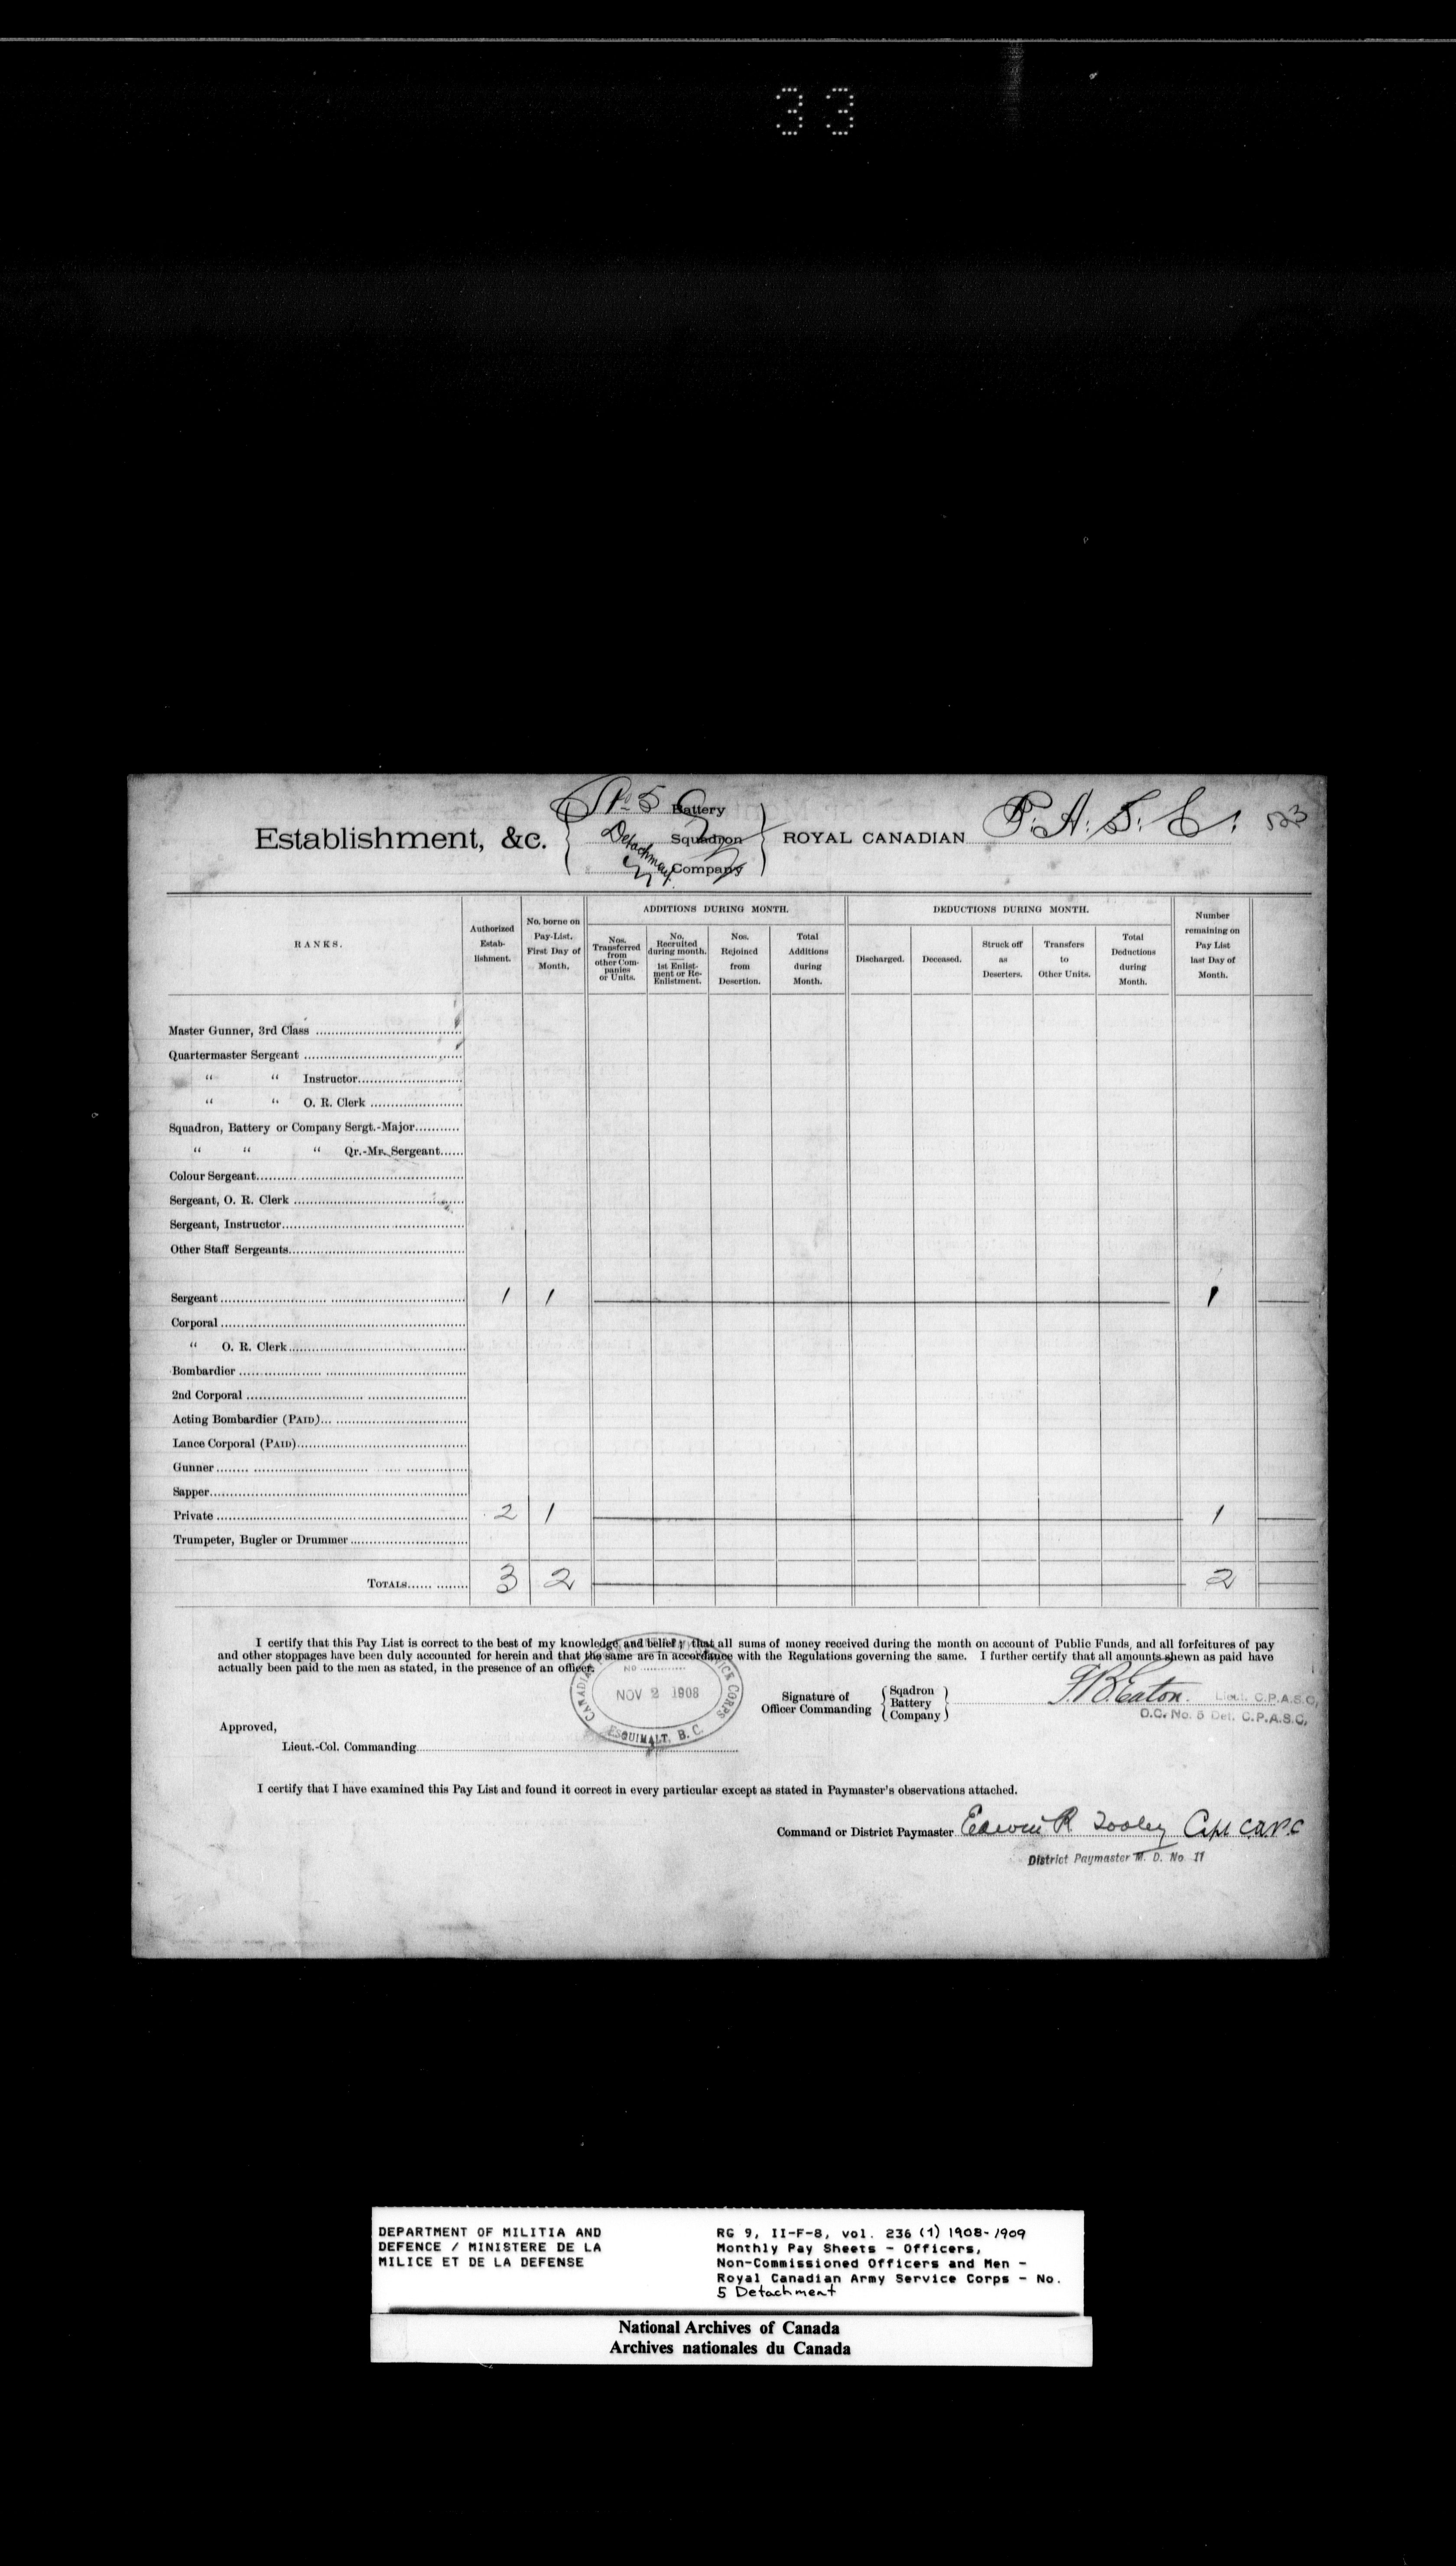 33
No 5 Battery
Establishment, &c. Detachment Squadron ROYAL CANADIAN P.A.S.C. 523
Company
RANKS.
Authorized Estab- lishment.
No. borne on Pay-List. First Day of Month.
ADDITIONS DURING MONTH.
Nos. Transferred from other Com- panies or Units.
No. Recruited during month. 1st Enlist- ment or Re- Enlistment.
Nos. Rejoined from Desertion.
Total Additions during Month.
DEDUCTIONS DURING MONTH.
Discharged.
Deceased.
Struck off as Deserters.
Transfers to Other Units.
Total Deductions during Month.
Number remaining on Pay List last Day of Month.
Master Gunner, 3rd Class
Quartermaster Sergeant
“ “ Instructor
“ “ O. R. Clerk
Squadron, Battery or Company Sergt.-Major
“ “ “ Qr.-Mr. Sergeant
Colour Sergeant
Sergeant, O. R. Clerk
Sergeant, Instructor
Other Staff Sergeants
Sergeant 1 1 1
Corporal
“ O. R. Clerk
Bombardier
2nd Corporal
Acting Bombardier (PAID)
Lance Corporal (PAID)
Gunner
Sapper
Private 2 1 1
Trumpeter, Bugler or Drummer
TOTALS 3 2 2
I certify that this Pay List is correct to the best of my knowledge and belief; that all sums of money received during the month on account of Public Funds, and all forfeitures of pay
and other stoppages have been duly accounted for herein and that the same are in accordance with the Regulations governing the same. I further certify that all amounts shewn as paid have
actually been paid to the men as stated, in the presence of an officer.
CANADIAN SERVICE CORPS
NO
NOV 2 1908
ESQUIMALT, B. C.
Signature of Officer Commanding { Sqadron Battery Company } F.B. Eaton. Lieut. C.P.A.S.C,
O.C. No. 5 Det. C.P.A.S.C,
Approved,
Lieut.-Col. Commanding
I certify that I have examined this Pay List and found it correct in every particular except as stated in Paymaster's observations attached.
Command or District Paymaster Edwin R Tooley Capt C.A.P.C
District Paymaster M. D. No 11
DEPARTMENT OF MILITIA AND
DEFENCE / MINISTERE DE LA
MILICE ET DE LA DEFENSE
RG 9, II-F-8, vol. 236 (1) 1908-1909
Monthly Pay Sheets - Officers,
Non-Commissioned Officers and Men -
Royal Canadian Army Service Corps - No.
5 Detachment
National Archives of Canada
Archives nationales du Canada